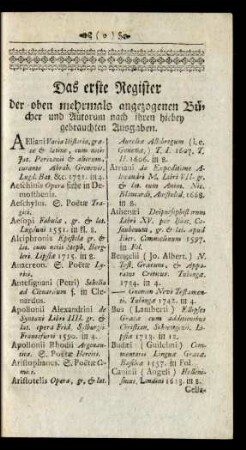 ( o )
Das erste Register
der oben mehrmals angezogenen Bü-
cher und Autorum nach ihren hiebey
gebrauchten Ausgaben.
AEliani Varia Historia, græ-
ce & latine, cum notis
Jac. Perizonii & aliorum,
curante Abrah. Gronovio,
Lugd. Bat. &c. 1731. in 4.
Aeschinis Opera siehe in De-
mosthenem.
Aeschylus. S. Poëtæ Tra-
gici.
Aesopi Fabulæ, gr. & lat.
Lugduni 1551. in fl. 8.
Alciphronis Epistolæ gr. &
lat. cum notis Steph. Berg-
leri. Lipsiæ 1715. in 8.
Anacreon. S. Poëtæ Ly-
rici.
Antesignani (Petri) Scholia
ad Clenardum f. in Cle-
nardus.
Apollonii Alexandrini de
Syntaxi Libri IIII. gr. &
lat. opera Frid. Sylburgii.
Francofurti 1590. in 4.
Apollonii Rhodii Argonau-
tica. S. Poëtæ Heroici.
Aristophanes. S. Poëtæ Co-
mici.
Aristotelis Opera, gr. & lat.
Aureliæ Allobrogum (i. e.
Genevæ,) T. I. 1607. T.
II. 1606. in 8.
Arriani de Expeditione A-
lexandri M. Libri VII. gr.
& lat. cum Annot. Nic.
Blancardi, Amstelod. 1668.
in 8.
Athenæi Deipnosophistarum
Libri XV. per Isac. Ca-
saubonum, gr. & lat. apud
Hier. Commelinum 1597.
in Fol.
Bengelii (Jo. Albert.) N.
Test. Græcum, & Appa-
ratus Criticus. Tubingæ.
1734. in 4.
— Gnomon Novi Testamen-
ti. Tubingæ 1742. in 4.
Bos (Lamberti) Ellipses
Græcæ cum additionibus
Christian. Schoettgenii. Li-
psiæ 1713. in 12.
Budæi (Guilelmi) Com-
mentarii Linguæ Græcæ.
Basileæ 1557. in Fol.
Caninii (Angeli) Helleni-
smus, Londini 1613. in 8.